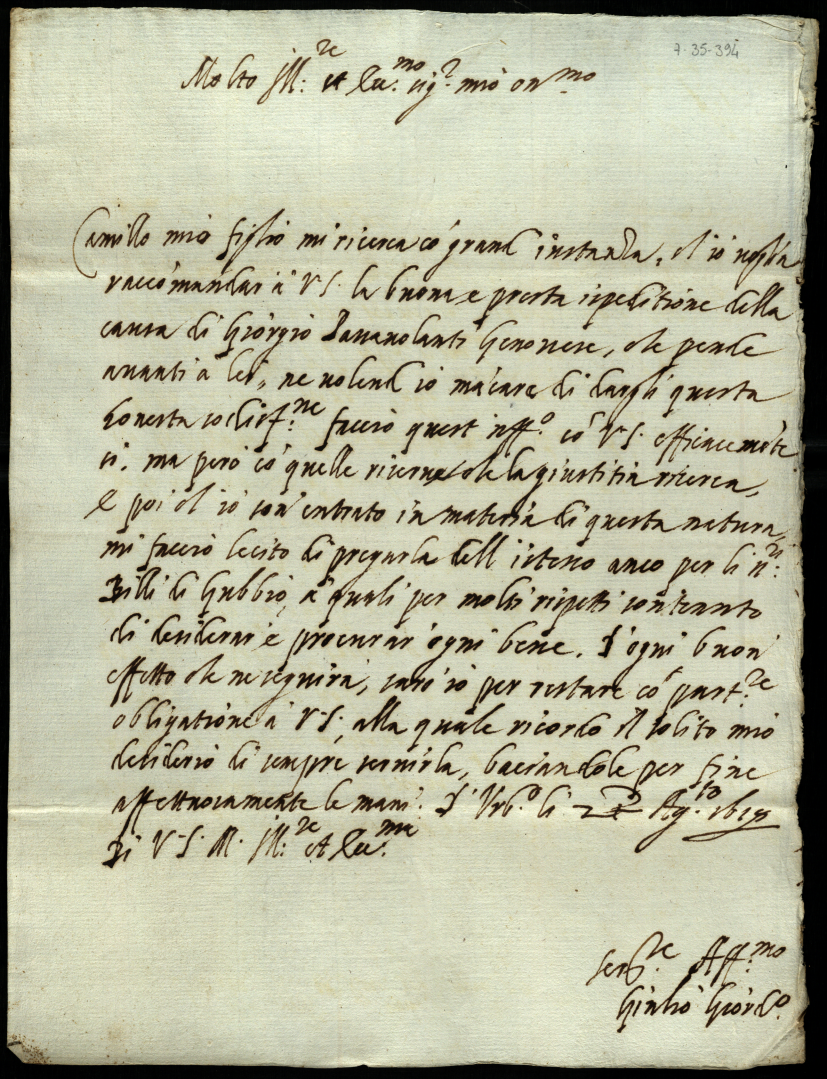 7-35-394
Molto Ill.re et Ecc.mo sig.r mio on.mo
Camillo mio figlio mi ricerca cõ grand instanza, ch' io voglia
raccõmandar à V.S. la buona e presta ispeditione della
causa di Giorgio Genovese, che pende
avanti à lei, ne volend io mãcare di dargli questa
honesta sodisf.ne faccio quest uff.o cõ V.S. efficacemẽte
si, ma però cõ quelle riserve che la giustitia ricerca,
E poi ch' io son' entrato in materia di questa natura,
mi faccio lecito di pregarla dell istesso anco per li
Billi di Gubbio, à quali per molti rispetti son tenuto
di desiderar e procurar ogni bene. D' ogni buon
effetto che ne seguirà, sarò io per restare cõ part.re
obligatione à V.S., alla quale ricordo il solito mio
desiderio di sempre servirla, baciandole per fine
affettuosamente le mani. D' Urb.o li Ag.to
Di V.S. M. Ill.re et Ecc.ma
Ser.re Aff.mo
Giulio Giord.o